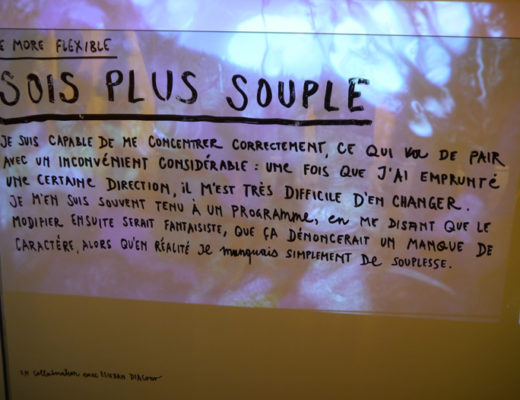 E MORE FLEXIBLE
SOIS PLUS SOUPLE
JE SUIS CAPABLE DE ME CONCENTRER CORRECTEMENT, CE QUI VA DE PAIR
AVEC UN INCONVÉNIENT CONSIDÉRABLE : UNE FOIS QUE J'AI EMPRUNTÉ
UNE CERTAINE DIRECTION, iL M'EST TRÈS DIFFICILE D'EN CHANGER.
JE M'EN SUIS SOUVENT TENU À UN PROGRAMME, en ME DISANT QUE LE
MODIFIER ENSUITE SERAIT FANTAISISTE, QUE ÇA DÉNONCERAIT UN MANQUE DE
CARACTÈRE, ALORS QU'EN RÉALITÉ JE manquais SIMPLEMENT DE SOUPLESSE.